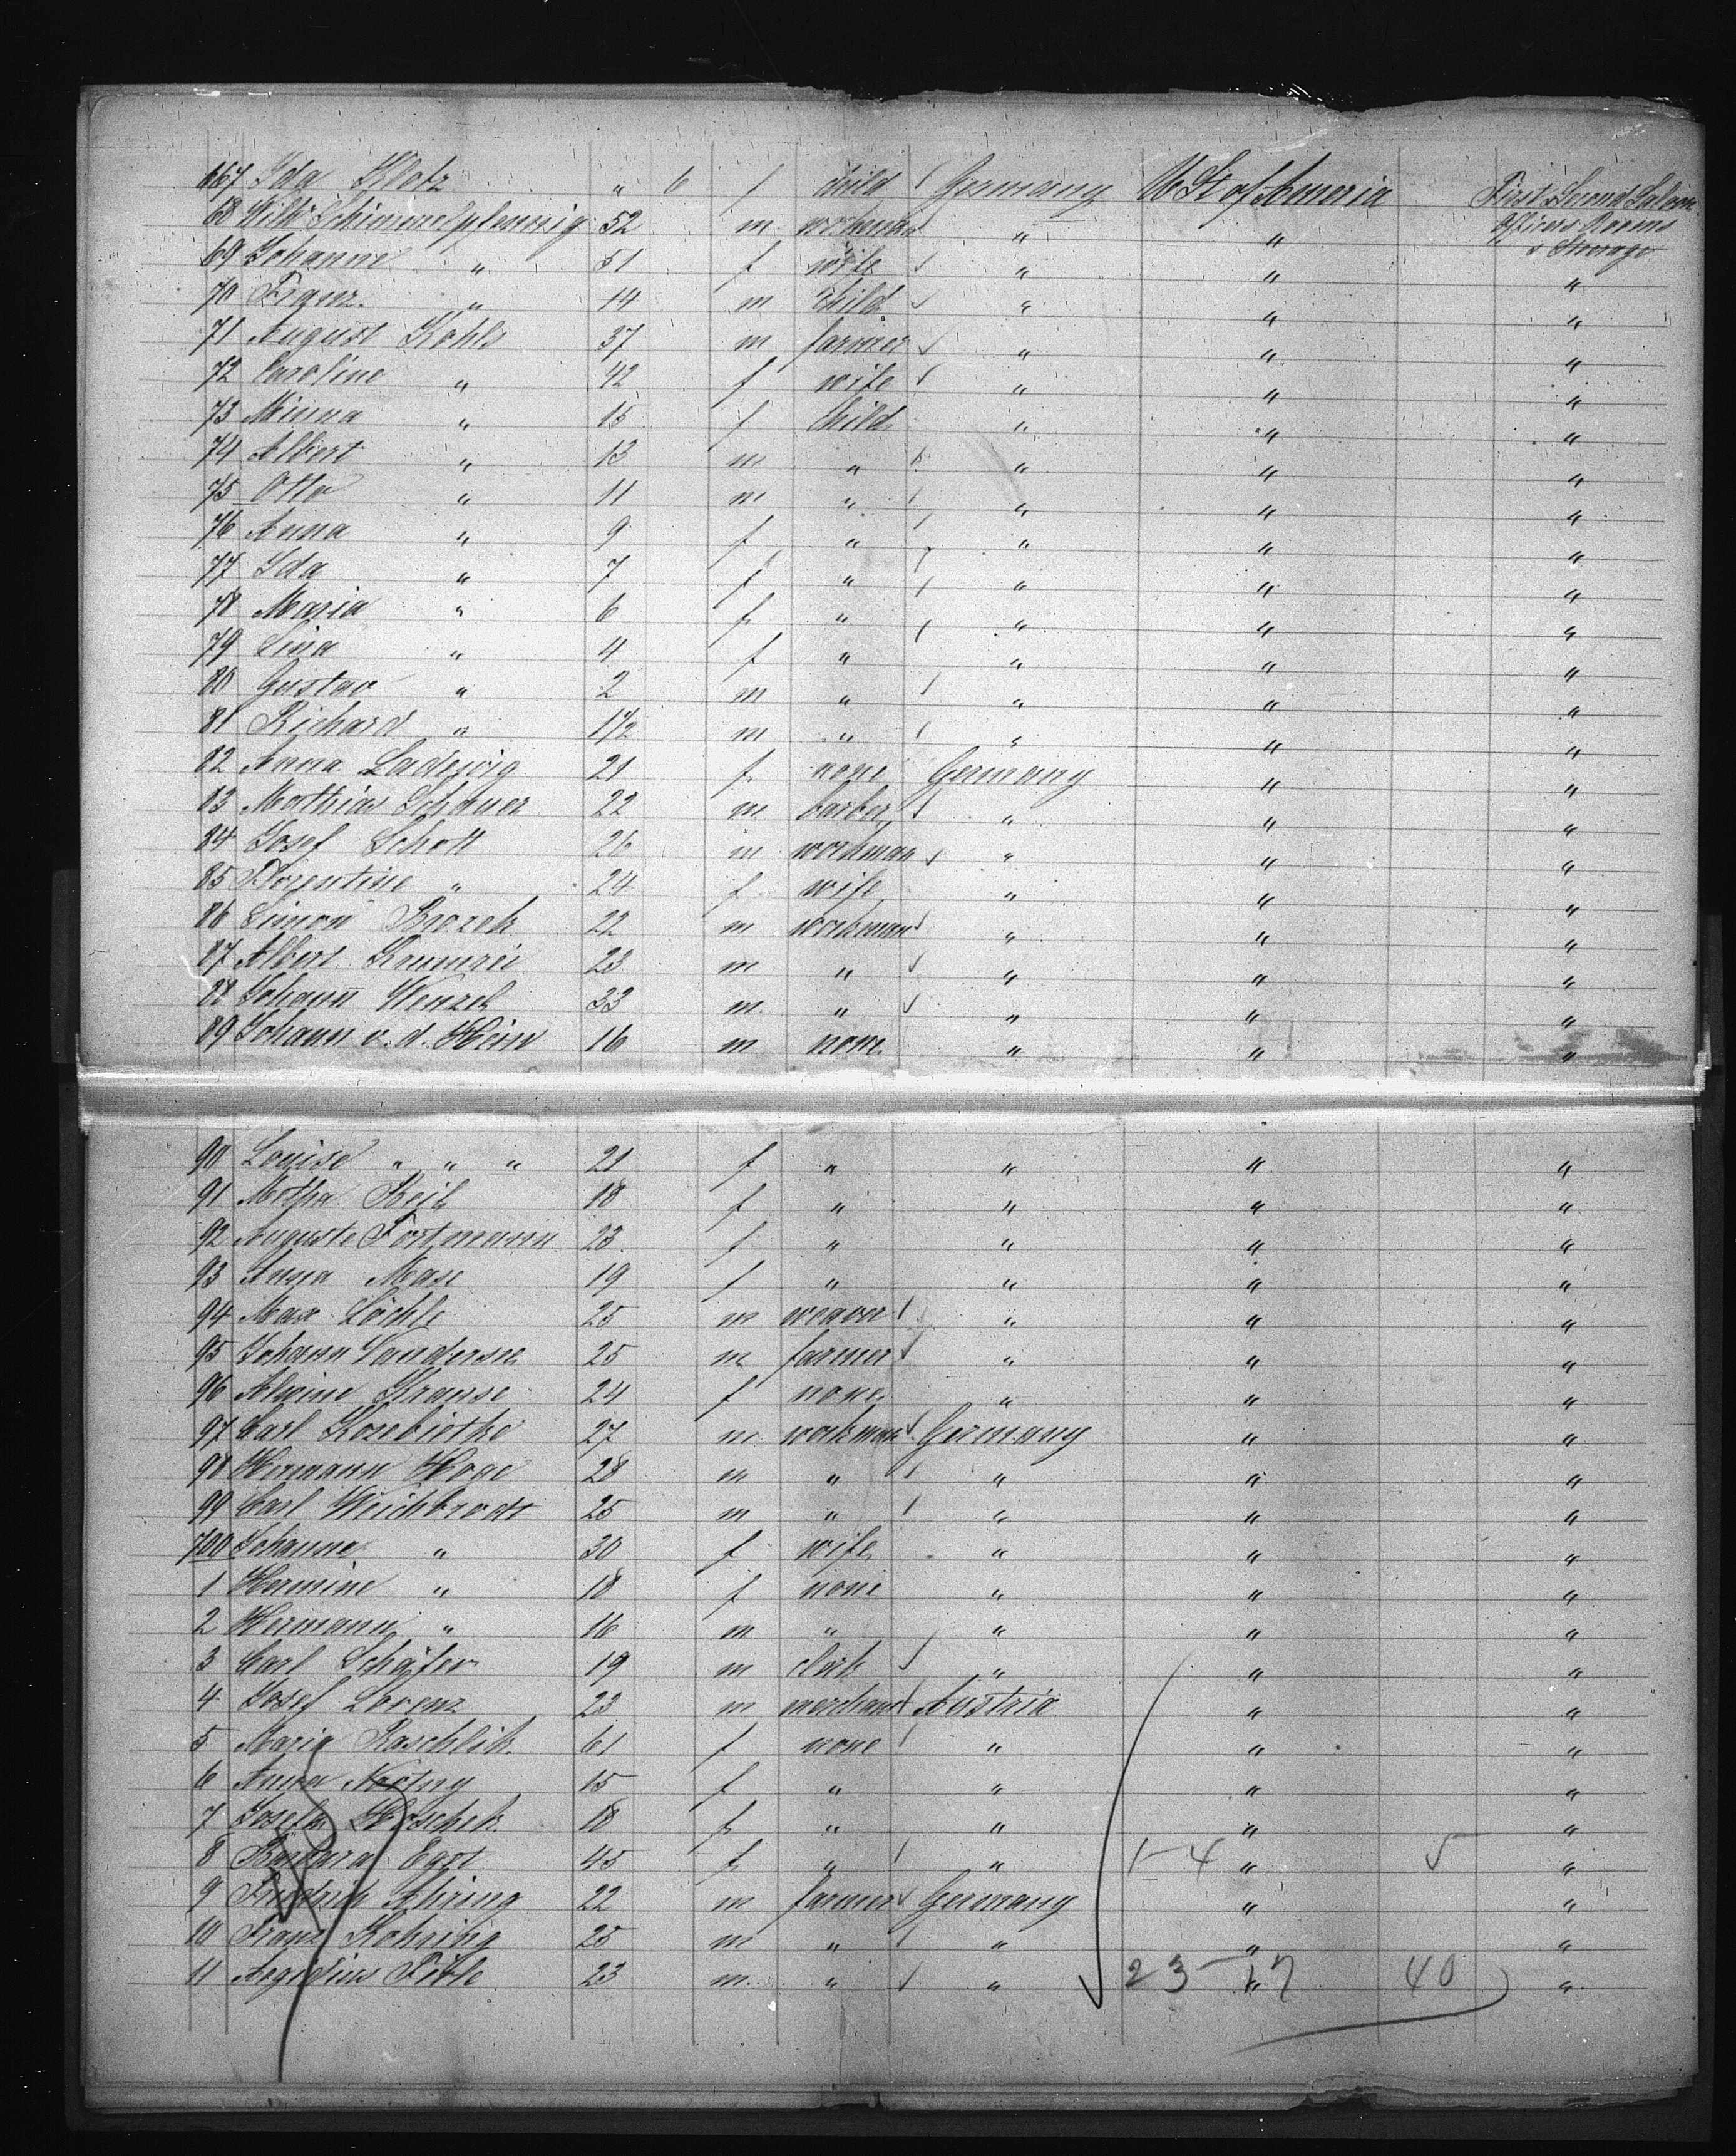 667 Ida Klotz " 6 f child Germany U St of America First & Second Saloon
68 Wilh. Schimmelpfennig 52 m workman " " Officers Rooms
& Steerage
69 Johanne " 51 f wife " " "
70 Franz " 14 m child " " "
71 August Kohls 37 m farmer " " "
72 Caroline " 42 f wife " " "
73 Minna " 15 f child " " "
74 Albert " 13 m " " " "
75 Otto " 11 m " " " "
76 Anna " 9 f " " " "
77 Ida " 7 f " " " "
78 Maria " 6 f " " " "
79 Lina " 4 f " " " "
80 Gustav " 2 m " " " "
81 Richard " 1 1/2 m " " " "
82 Anna Ladewig 21 f none Germany " "
83 Mathias Schauer 22 m barber " " "
84 Josef Schott 26 m workman " " "
85 Florentine " 24 f wife " " "
86 Simon Brozek 22 m workman " " "
87 Albert 23 m " " " "
88 Johann Wenzel 33 m " " " "
89 Johann v. d. 16 m none " " "
90 Louise " " " 21 f " " " "
91 Keil 18 f " " " "
92 Auguste Fortmann 23 f " " " "
93 Anna Mase 19 f " " " "
94 Max Löchle 25 m weaver " " "
95 Johann Vandersee 25 m farmer " " "
96 Alwine Krause 24 f none " " "
97 Carl 27 m workman Germany " "
98 Hermann 28 m " " " "
99 Carl Weichbrodt 25 m " " " "
700 Johanna " 30 f wife " " "
1 Hermine " 18 f none " " "
2 Hermann " 16 m " " " "
3 Carl Schäfer 19 m clerk " " "
4 Josef Lorenz 23 m merchant Austria " "
5 Maria Raschlik 61 f none " " "
6 Anna 15 f " " " "
7 Josefa 18 f " " " "
8 Barbara 45 f " " 1-4 " 5 "
9 22 m farmer Germany " "
10 Franz Kohring 25 m " " " "
11 Aegidius 23 m " " 23-17 " 40 "